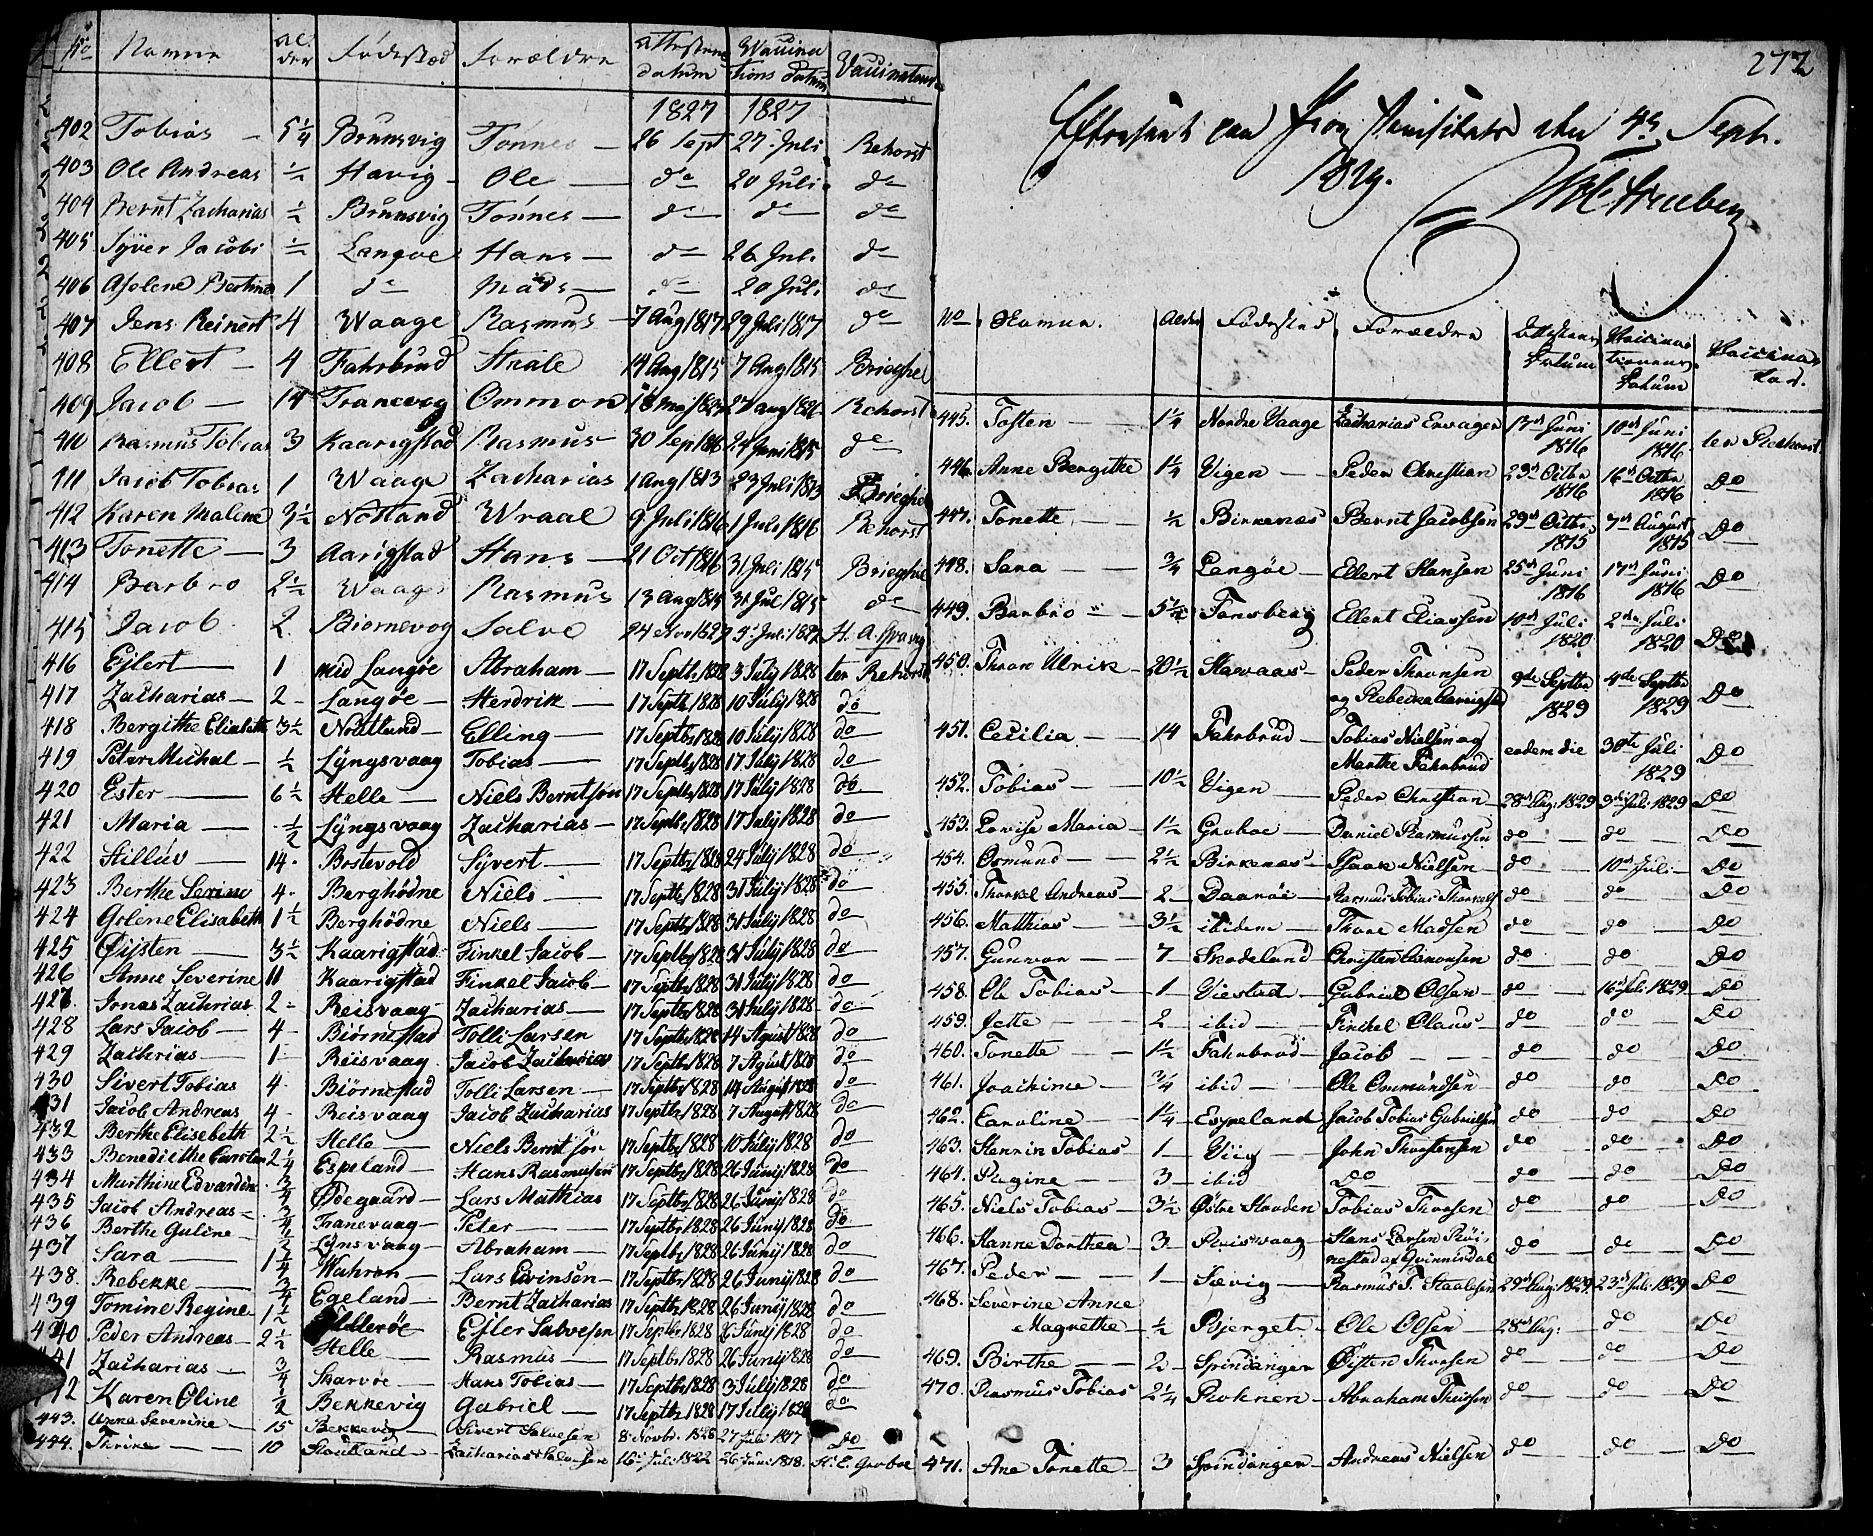 No Navne al- der Fødested Forældre attestens datum Vaccina tions datum Vaccinateur
1827 1827
402 Tobias — 5¼ Brunsvig Tønnes — 26 Sept 27 Juli Rehorst
403 Ole Andreas ½ Havig — Ole — do 20 Juli do
404 Bernt Zacharias ½ Brunsvig Tönnes — do do do
405 Syver Jacobi ½ Langøe Hans — do 26 Juli do
406 Aslene Bertine 1 do Mads — do 20 Juli do
407 Jens Reinert 4 Waage Rasmus — 7 Aug 1817 29 Juli 1817 do
408 Ellert — 4 Fahrbrud Staale 14 Aug 1815 7 Aug 1815 Brieghel
409 Jacob — 14 Tranevog Ommon 27 aug Rehorst
410 Rasmus Tobias 3 Kaarigstad Rasmus 30 Sep 1816 24 Juni 1815 do
411 Jacob Tobias 1 Waage Zacharias 1 Aug 1813 23 Juli 1813 Brieghel
412 Karen Malene 3½ Nodland Wraal 9 Juli 1816 1 Juli 1816 Rehorst
413 Tonette — 3 Aarigstad Hans — 21 Oct 1816 31 Juli 1815 Brieghel
414 Barbro 2½ Waage Rasmus 13 Aug 1815 31 Jul 1815 do
415 Jacob 2 Biornevog Salve 24 Nov 1827 5 Juli 1827 H. A. Gravvig
416 Ejlert — 1 mid Langøe Abraham — 11 Septb 1828 3 July 1828 ter Rehorst
417 Zacharias — 2 — Langøe — Hendrik — 17 Septb 1828 10 July 1828 do
418 Bergithe Elisabeth 3½ Nodtland — Elling — 17 Septbr 1828 10 July 1828 do
419 Peter Michal — ½ Lyngsvaag Tobias — 17 Septbr 1828 17 July 1828 do
420 Ester — 6½ Helle — Niels Berntsøn 17 Septbr 1828 17 July 1828 do
421 Maria — ½ Lyngsvaag Zacharias — 17 Septbr 1828 17 July 1828 do
422 Silluv — 14 Bostevold Syvert — 17 Septbr 1828 24 July 1828 do
423 Berthe Serine 4 Berghødne Niels — 17 Septbr 1828 31 July 1828 do
424 Golene Elisabeth 1½ Berghødne Niels — 17 Septbr 1828 31 July 1828 do
425 Øysten — 3½ Kaarigstad Finkel Jacob — 17 Septbr 1828 31 July 1828 do
426 Anne Severine 11 Kaarigstad Finkel Jacob — 17 Septbr 1828 31 July 1828 do
427 Jonas Zachrias 2 Reisvaag Zacharias — 17 Septbr 1828 31 July 1828 do
428 Lars Jacob — 4 Biørnestad Tolli Larsen 17 Septbr 1828 14 Agust 1828 do
429 Zachrias — 1 Reisvaag Jacob Zacharias 17 Septbr 1828 7 Agust 1828 do
430 Sivert Tobias 4 Biørnestad Tolli Larsen — 17 Septbr 1828 14 August 1828 do
431 Jacob Andreas 4 — Reisvaag Jacob Zacharias 17 Septbr 1828 7 August 1828 do
432 Berthe Elisebeth 2½ Helle — Niels Berntsøn 17 Septbr 1828 10 July 1828 do
433 Benedicthe 2¼ Espeland — Hans Rasmusen 17 Septbr 1828 26 Juny 1828 do
434 Marthine Edvardine ¾ Ødegaard — Lars Matthias 17 Septbr 1828 26 Juny 1828 do
435 Jacob Andreas — ¾ Tranevaag — Peter — 17 Septbr 1828 26 Juny 1828 do
436 Berthe Guline — ½ Lynsvaag — Abraham — 17 Septbr 1828 26 Juny 1828 do
437 Sara — 1¼ Wahren — Lars Evinsøn — 17 Septbr 1828 26 Juny 1828 do
438. Rebekke — ¾ Egeland — Bernt Zacharias 17 Septbr 1828 26 Juny 1828 do
439 Tomine Regine 1½ Hillerøe Efler Salvesen 17 Septbr 1828 26 Juny 1828 do
440 Peder Andreas — 2½ Helle — Rasmus — 17 Septbr 1828 26 Juny 1828 do
441 Zacharias — ¾ Skarvøe — Hans Tobias — 17 Septbr 1828 3 July 1828 do
442 Karen Oline ½ Bekkevig Gabriel — 17 Septbr 1828 17 July 1828 do
443. Anne Severine — 15 Bekkevig — Sivert Salvesen 8 Novbr. 27 Juli 1817 Do
444. Thrine — 10 Stoutland — Zacharias Salvesen 16 Juli 1822 26 Juni 1818. H. E. Groboe
272
Efterseet paa den 4de Septr.
1829.
No Navne. Alder Fødested Forældre Attestens Datum Vaccinationens Datum Vaccinateur.
445. Tosten — 1¼ Nordre Vaage Zacharias Ervagen 13de Juni 1816 10de Juni 1816 ter Rehorst
446. Anne Bergithe 1¼ Vigen — Peder Christian 23de Octbr 1816 16de Octbr 1816 Do
447. Tonette — ½ Birkenes Bernt Jacobsen 29de Octbr 1815 7de August 1815 Do
448. Sara — ¾ Langøe — Ellert Hansen 25de Juni 1816 17de Juni 1816 Do
449. Barbro — 5½ Fonsberg Ellert Eliassen 10de Juli 1820 2den Juli 1820 Do
450. Thron Ulrik — 20½ Stavaas — Peder Thronsen og Rebekka 9de Septbr 1829 4de Septbr 1829 Do
451. Cecilia — 14 Fahrbrud — Tobias Nielsen og Marthe Fahrbrud eodem die 30te Juli 1829 Do
452. Tobias — 10½ Vigen — Peder Christian — 28de Aug: 1829 9de Jul: 1829 Do
453. Lovise Maria — 1½ Groboe — Daniel Rasmussen do do Do
454. Osmund — 2½ Birkenes — Isaak Nielsen — do 10de Juli — Do
455. Thorkel Andreas — 2 — Daarøe — Rasmus Tobias do do Do
456. Matthias — 3½ ibidem — Thore Madsen do do Do
457. Gunvor — 7 Skodeland Christen do do Do
458. Ole Tobias — 1 — Viestad — Gabriel Olsen — do 16de Jul: 1829 Do
459. Jette — 2 — ibid — Finkel Olaus — do do Do
460. Tonette — 1½ Fahrbrud — Jacob — do do Do
461. Joachime — ¾ ibid — Ole Ommundsen — do do Do
462. Caroline — 1¼ Espeland Jacob Tobias Gabrielsen do do Do
463. Henrik Tobias 1 — Viig — John Thorstensen do do Do
464. Ragine — 3 — ibid Do do do Do
465. Niels Tobias — 3½ Østre Hauden Tobias Thorsen do do Do
466. Hanne Dorthea 3 — Reisvaag — Hans Larsen Røinestad af Qvinnesdal do do Do
467. Peder — 1 — Sævig — Rasmus T. Staalesen 29de Aug: 1829 23de Jul: 1829 Do
468. Severine Anne Magrethe — ½ Bjerget — Ole Olsen — 28de Aug: do Do
469. Birthe — 2 — Spindangen Øisten Thorsen do do Do
470. Rasmus Tobias 2¼ Roknen — Abraham do do Do
471. Ane Tonette — 3 Spindangen — Andreas Nielsen do do Do